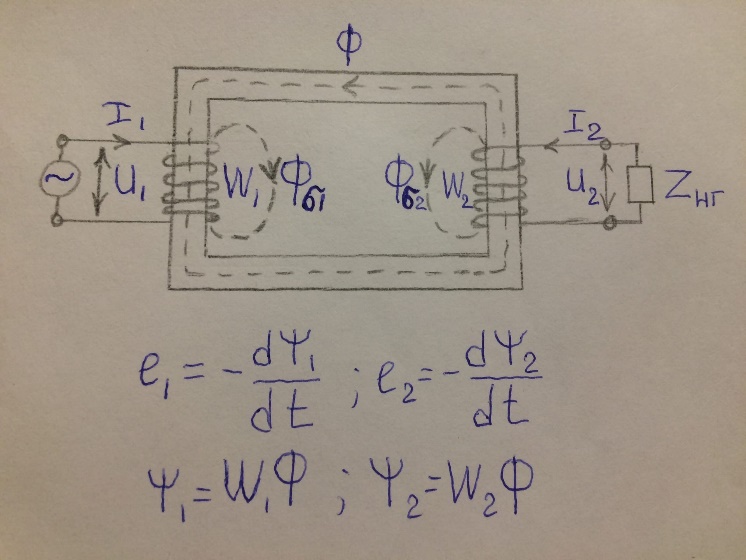 Φ
I₁ I₂
U₁ W₁ Φσ₁ Φσ₂ W₂ U₂ Zнг
e₁ = - dΨ₁/dt ; e₂ = - dΨ₂/dt
Ψ₁ = W₁Φ ; Ψ₂ = W₂Φ